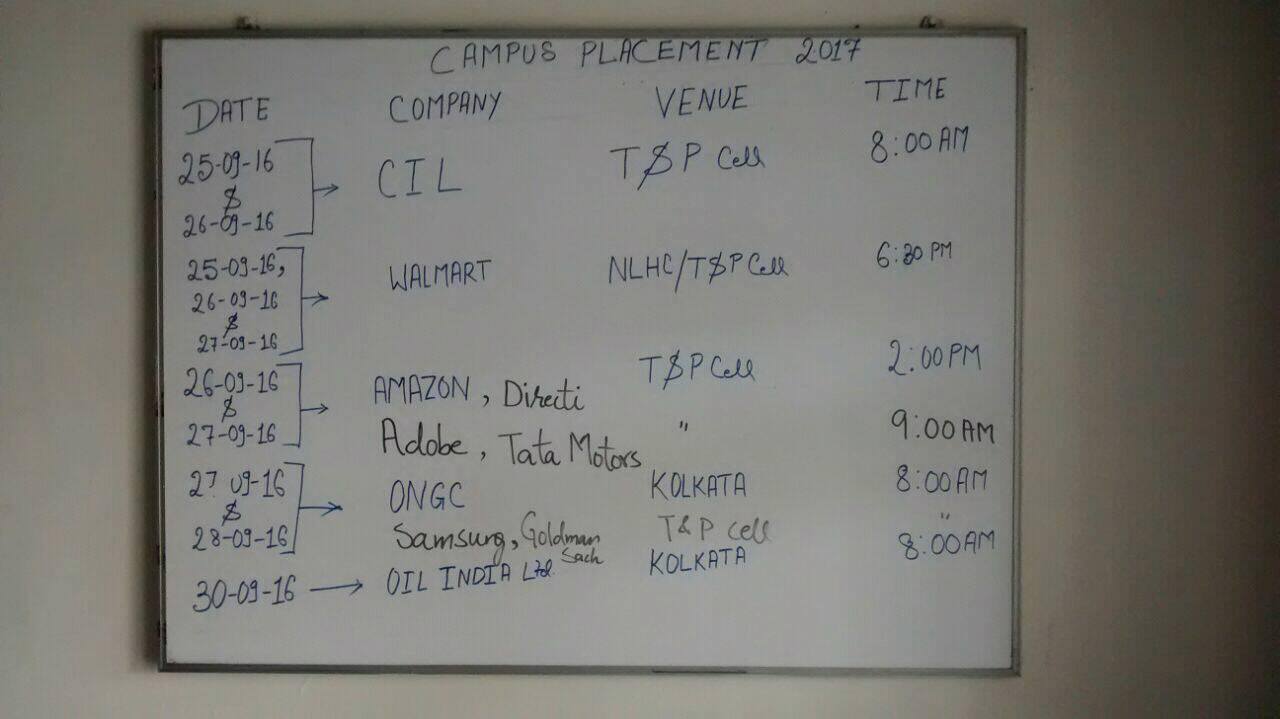 CAMPUS PLACEMENT 2017
DATE COMPANY VENUE TIME
25-09-16 & 26-09-16 → CIL T&P Cell 8:00 AM
25-09-16, 26-09-16 & 27-09-16 → WALMART NLHC/T&P Cell 6:30 PM
26-09-16 & 27-09-16 → AMAZON, Directi T&P Cell 2:00 PM
Adobe, Tata Motors " 9:00 AM
27-09-16 & 28-09-16 → ONGC KOLKATA 8:00 AM
Samsung, Goldman Sach T&P cell "
30-09-16 → OIL INDIA Ltd KOLKATA 8:00 AM